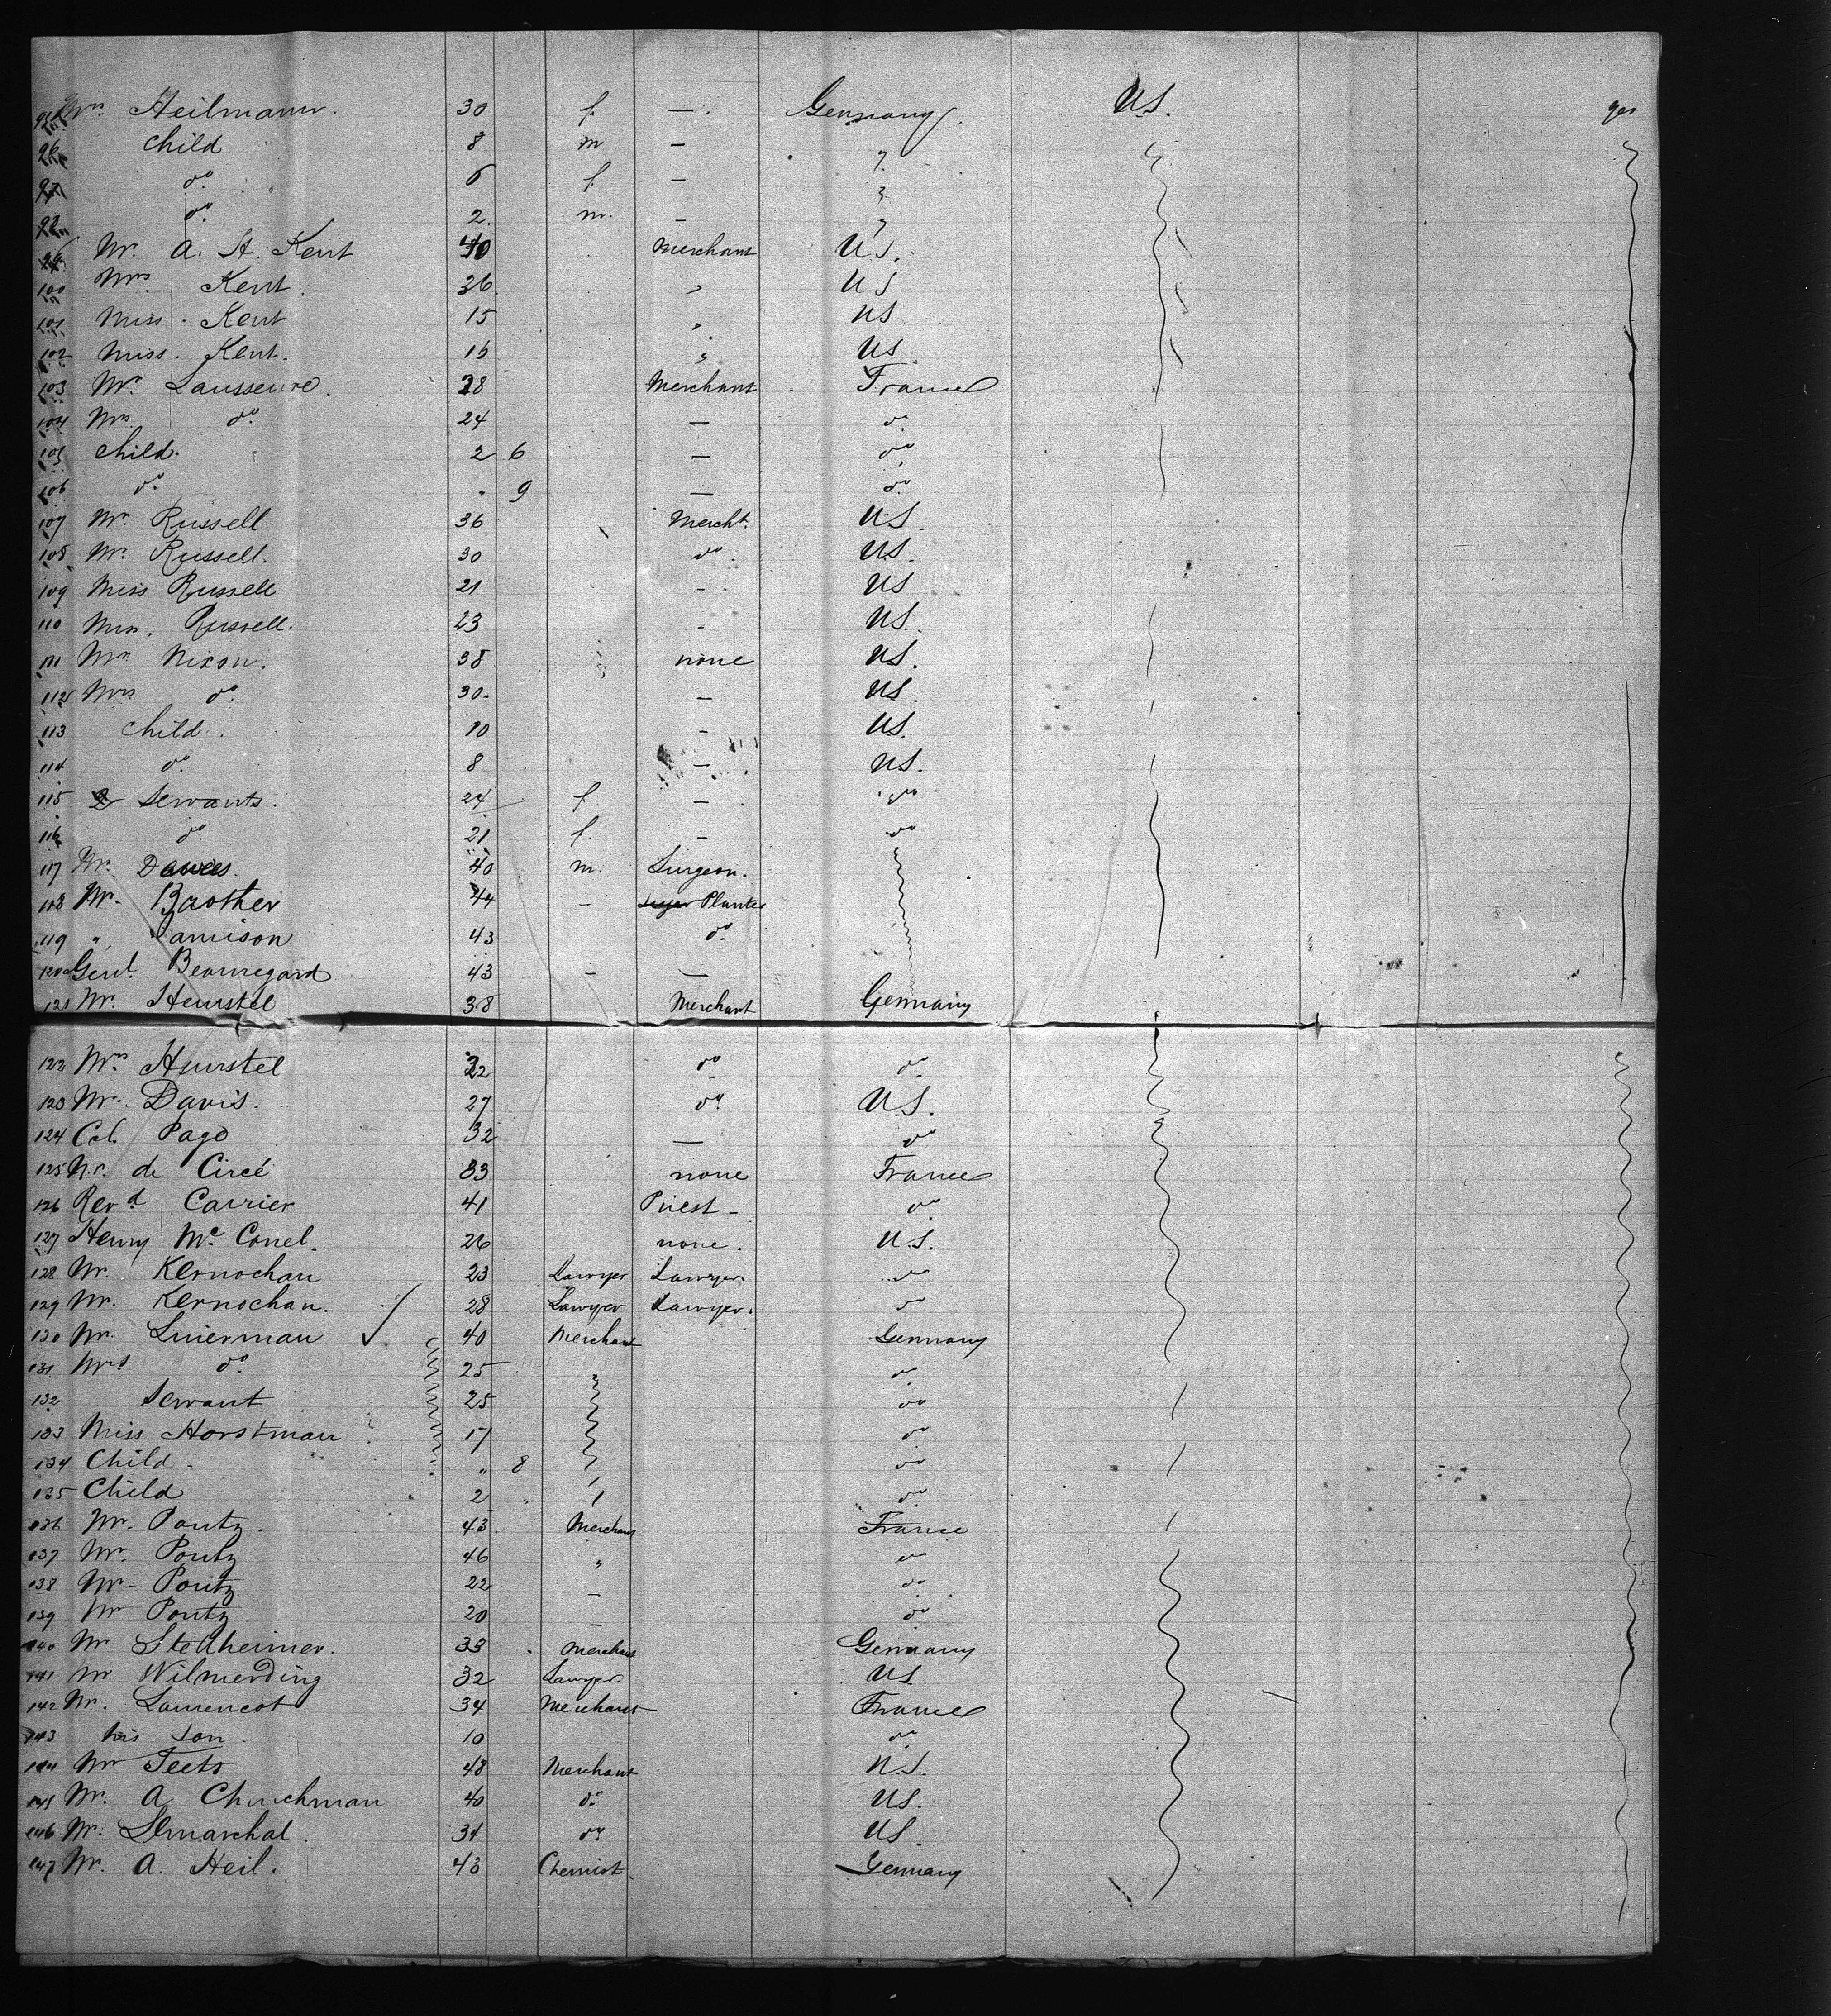 95 Mrs Heilmann. 30 f. — Germany. U.S. yes
96 child 8 m —
97 do 6 f. —
98 do 2. m. —
99 Mr. A. H. Kent 40 Merchant U.S.
100 Mrs. Kent. 36 " U S
101 Miss. Kent 15 " US
102 Miss. Kent. 16 " US
103 Mr. 28 Merchant France
104 Mrs. do. 24 — do
105 child. 2 6 — do
106 do. . 9 — do.
107 Mr. Russell 36 Mercht. U.S.
108 Mr. Russell. 30 do. US.
109 Miss Russell 21 - US
110 Russell. 23 - US.
111 Mr. Nixon. 38 none US.
112 Mrs do. 30- — US.
113 child. 10 — US.
114 do. 8 — US.
115 2 Servants. 24 f. — do
116 do. 21 f. — do
117 Mr. 40 m. Surgeon.
118 Mr. Brother 44 - Planter
119 " Jamison 43 do.
120 Genl. Beauregard 43 - —
121 Mr. Hurstel 38 Merchant Germany
122 Mrs Hurstel 32 do do
123 Mr. Davis. 27 do. U.S.
124 Col. Page 32 — do
125 Mr. de Circé 33 none France
126 Revd Carrier 41 Priest - do
127 Henry Mc Conel. 26 none. U.S.
128 Mr. Kernochan 23 Lawyer Lawyer. do
129 Mr. Kernochan. 28 Lawyer Lawyer. do
130 Mr. Linerman 40 Merchant Germany
131 Mrs do. 25 do
132 Servant 25 do
133 Miss Horstman 17 do
134 Child. " 8 do
135 Child 2 do
136 Mr. Poutz. 43. Merchant France
137 Mr. Poutz 46 " do
138 Mr- Poutz 22 — do
139 Mr Poutz 20 — do
140 Mr Stettheimer. 33 Merchant Germany
141 Mr Wilmerding 32 Lawyer. US.
142 Mr. Laurencot 34 Merchant France
143 his son. 10 do
144 Mr Teets 48 Merchant U.S.
145 Mr. A Churchman 40 do US.
146 Mr. Lemarchal. 34 do US.
147 Mr. A. Heil. 43 Chemist. Germany